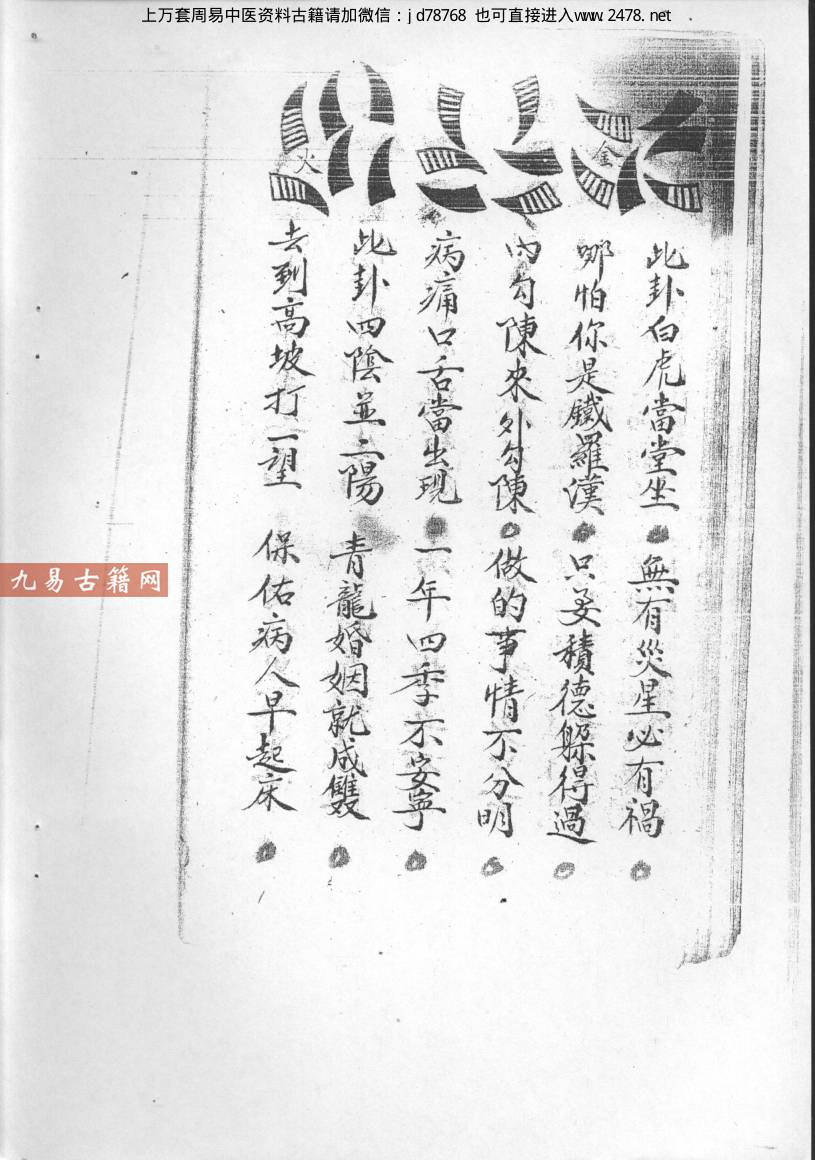 上万套周易中医资料古籍请加微信：jd78768 也可直接进入www.2478.net
金
火
此卦白虎當堂坐 無有災星必有禍
哪怕你是鐵羅漢 只要積德躲得過
內勾陳來外勾陳 做的事情不分明
病痛口舌當出現 一年四季不安寧
此卦四陰並二陽 青龍婚姻就成雙
去到高坡打一望 保佑病人早起床
九易古籍网